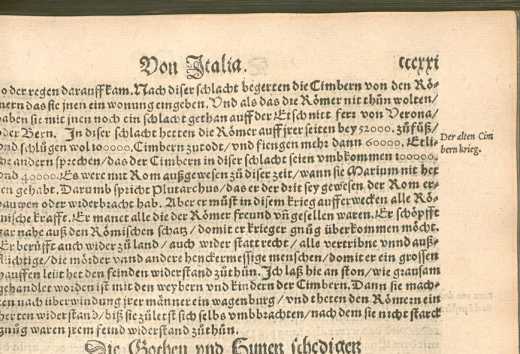 Von Italia. cccxxi
der regen darauff kam. Nach diser schlacht begerten die Cimbern von den Rö-
mern das sie jnen ein wonung eingeben. Und als das die Römer nit thůn wolten/
haben sie mit jnen noch ein schlacht gethan auff der Etsch nitt ferr von Verona/
oder Bern. In diser schlacht hetten die Römer auff jrer seiten bey 52000. zů fůß/
vnd schlůgen wol 100000. Cimbern zutodt/ vnd fiengen mehr dann 60000. Etli-
che andern sprechen/ das der Cimbern in diser schlacht seien vmbkommen 100000.
vnd 40000. Es were mit Rom außgewesen zů diser zeit/ wann sie Marium nit het
ten gehabt. Darumb spricht Plutarchus/ das er der drit sey gewesen der Rom er-
bauwen oder widerbracht hab. Aber er můst in disem krieg aufferwecken alle Rö-
mische krafft. Er manet alle die der Römer freund vñ gesellen waren. Er schöpfft
gar nahe auß den Römischen schatz/ domit er krieger gnůg überkommen möcht.
Er berůfft auch wider zů land/ auch wider statt recht/ alle vertribne vnnd auß-
flüchtige/ die mörder vnnd andere henckermessige menschen/ domit er ein grossen
hauffen leüt het den feinden widerstand zůthůn. Ich laß hie an ston/ wie grausam
gehandlet worden ist mit den weybern vnd kindern der Cimbern. Dann sie mach-
ten nach überwindung jrer männer ein wagenburg/ vnd theten den Römern ein
herten widerstand/ biß sie zůletst sich selbs vmbbrachten/ nach dem sie nicht starck
gnůg waren jrem feind widerstand zůthůn.
Der alten Cim
bern krieg.
Die Gothen vnd Hunen schedigen